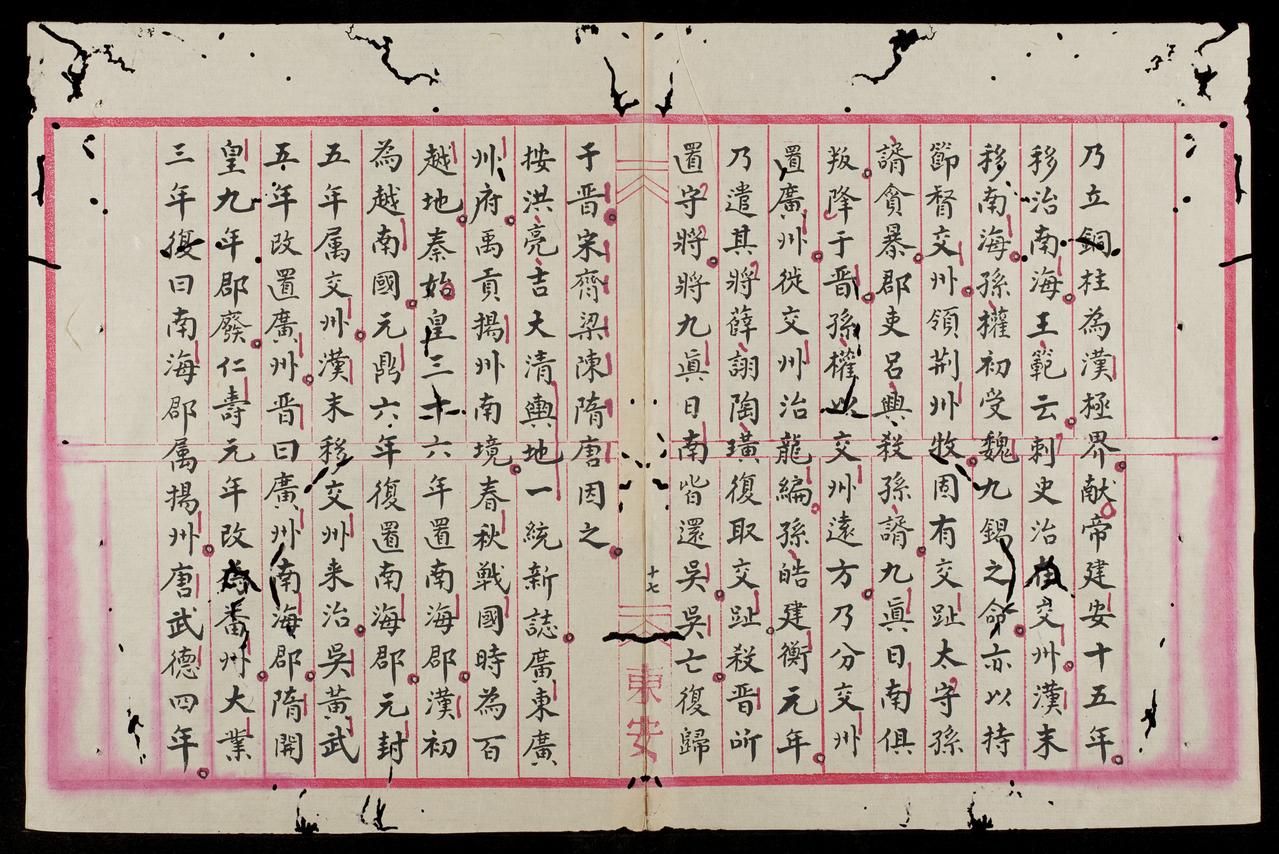 乃立銅柱為漢極界献帝建安十五年
移治南海王範云刺史治在交州漢末
移南海孫權初受魏九錫之命亦以持
節督交州領荆州牧固有交趾太守孫
諝貪暴郡吏呂興殺孫諝九眞日南俱
叛降于晋孫權以交州遠方乃分交州
置廣州徙交州治龍編孫皓建衡元年
乃遣其將薛翊陶璜復取交趾殺晋所
置守將將九眞日南皆還吳吳亡復歸
十七
東安
于晋宋齊梁陳隋唐因之
按洪亮吉大清輿地一統新誌廣東廣
州府禹貢揚州南境春秋戰國時為百
越地秦始皇三十六年置南海郡漢初
為越南國元鼎六年復置南海郡元封
五年属交州漢末移交州来治吳黃武
五年改置廣州晋曰廣州南海郡隋開
皇九年郡廢仁壽元年改為番州大業
三年復曰南海郡属揚州唐武德四年